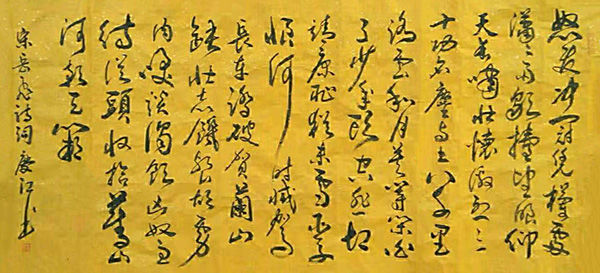 怒发冲冠凭欄處
瀟々雨歇擡望眼仰
天长嘯壮懷激烈三
十功名塵与土八千里
路雲和月莫等閑白
了少年頭空悲切
靖康恥猶未雪臣子
恨何时滅驾
長車踏破賀蘭山
缺壮志饑餐胡虜
肉笑談渴飲匈奴血
待從頭收拾舊山
河朝天闕
宋岳飛詩詞慶江书